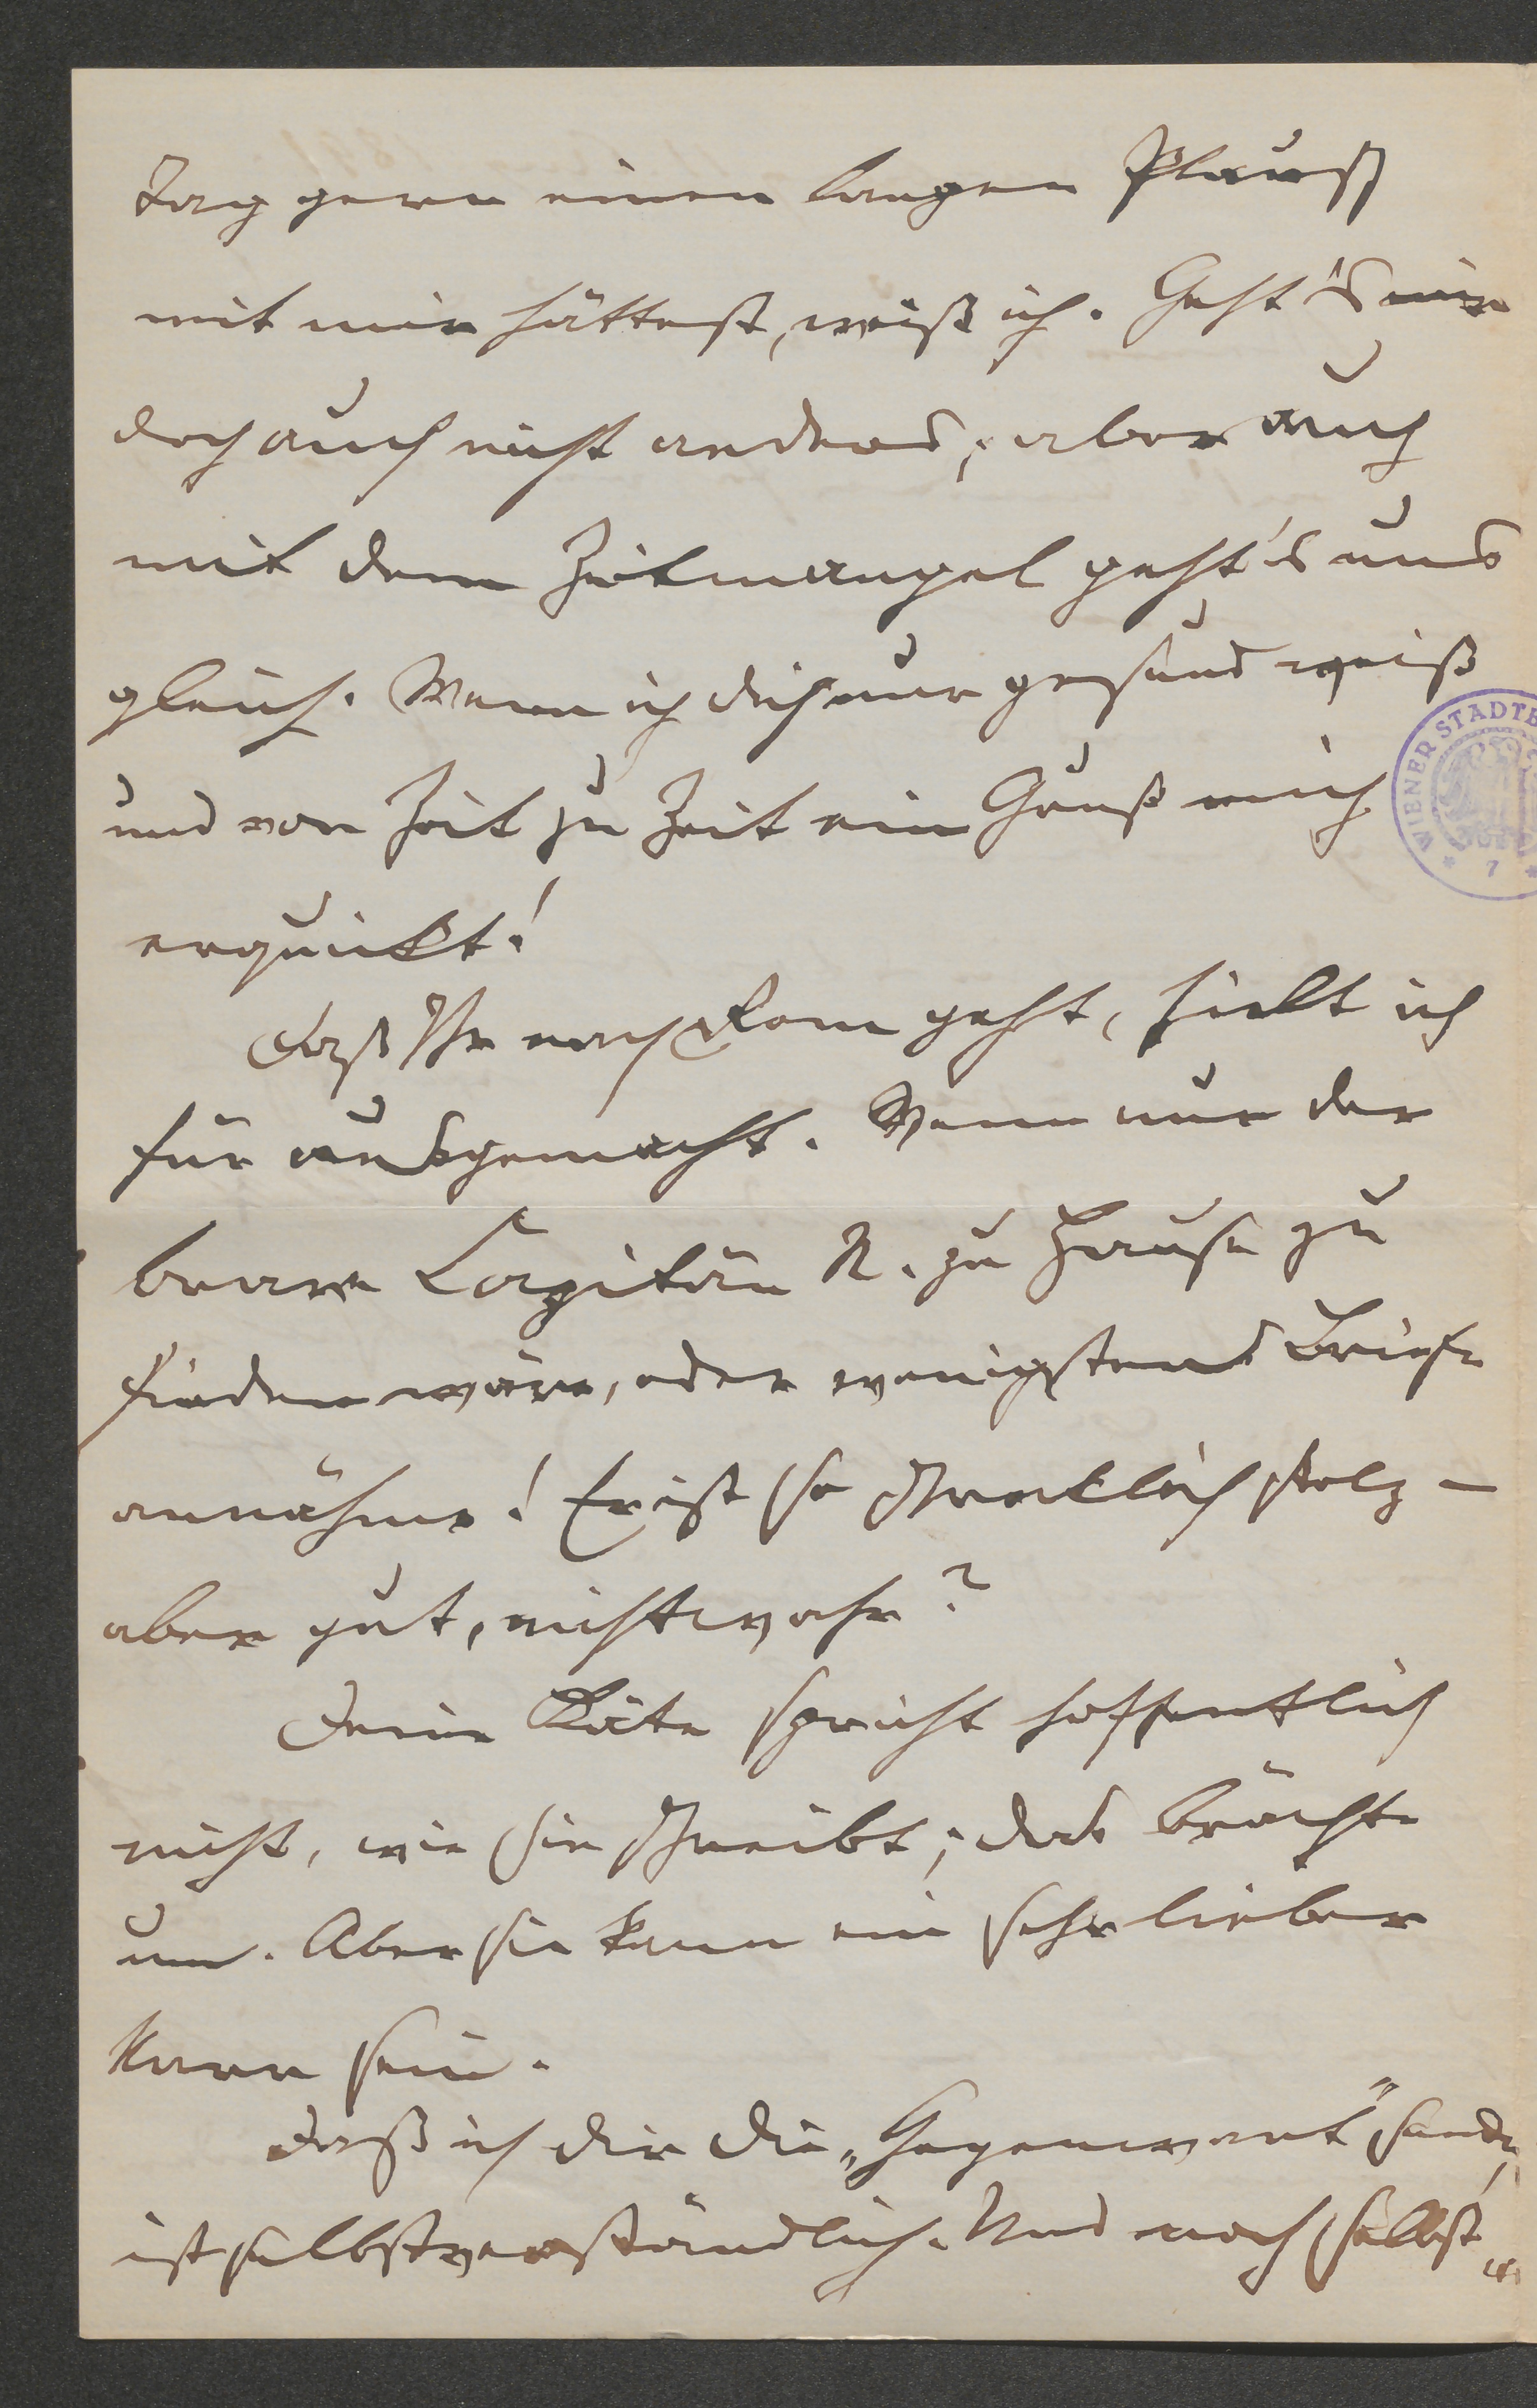 Tag gern einen langen Plausch
mit mir hättest, weiß ich. Geht's mir
doch auch nicht anders; aber auch
mit dem Zeitmangel geht's uns
gleich. Wenn ich dich nur gesund weiß
und von Zeit zu Zeit ein Gruß mich
erquickt!
Daß Ihr nach Rom geht, hielt ich
für ausgemacht. Wenn nur der
brave Capitän R. zu Hause zu
finden wäre, oder wenigstens Briefe
annähme! Er ist so schrecklich stolz –
aber gut, nicht wahr?
Deine Käte spricht hoffentlich
nicht, wie sie schreibt; das brächte
um. Aber sie kann ein sehr lieber
Narr sein.
Daß ich dir die „Gegenwart" sende,
ist selbstverständlich. Und noch selbst„
WIENER STADTB
* 7 *